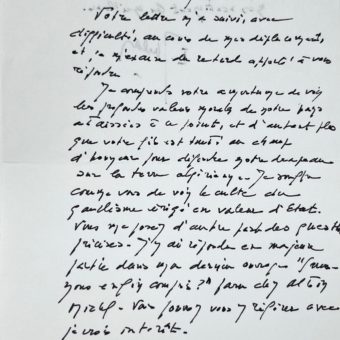 Votre lettre m'a suivi, avec
difficultés, au cours de mes déplacements,
et je m'excuse du retard apporté à vous
répondre.
Je comprends votre amertume de voir
les profondes valeurs morales de notre pays
abaissées à ce point, et d'autant plus
que votre fils est tombé au champ
d'honneur pour défendre notre drapeau
sur la terre algérienne. Je souffre
comme vous de voir le culte du
gaullisme érigé en valeur d'Etat.
Vous me posez d'autre part des questions
précises. J'y ai répondu en majeure
partie dans mon dernier ouvrage "
enfin compris?" paru chez Albin
Michel. Vous pouvez vous y référer avec
je crois intérêt.